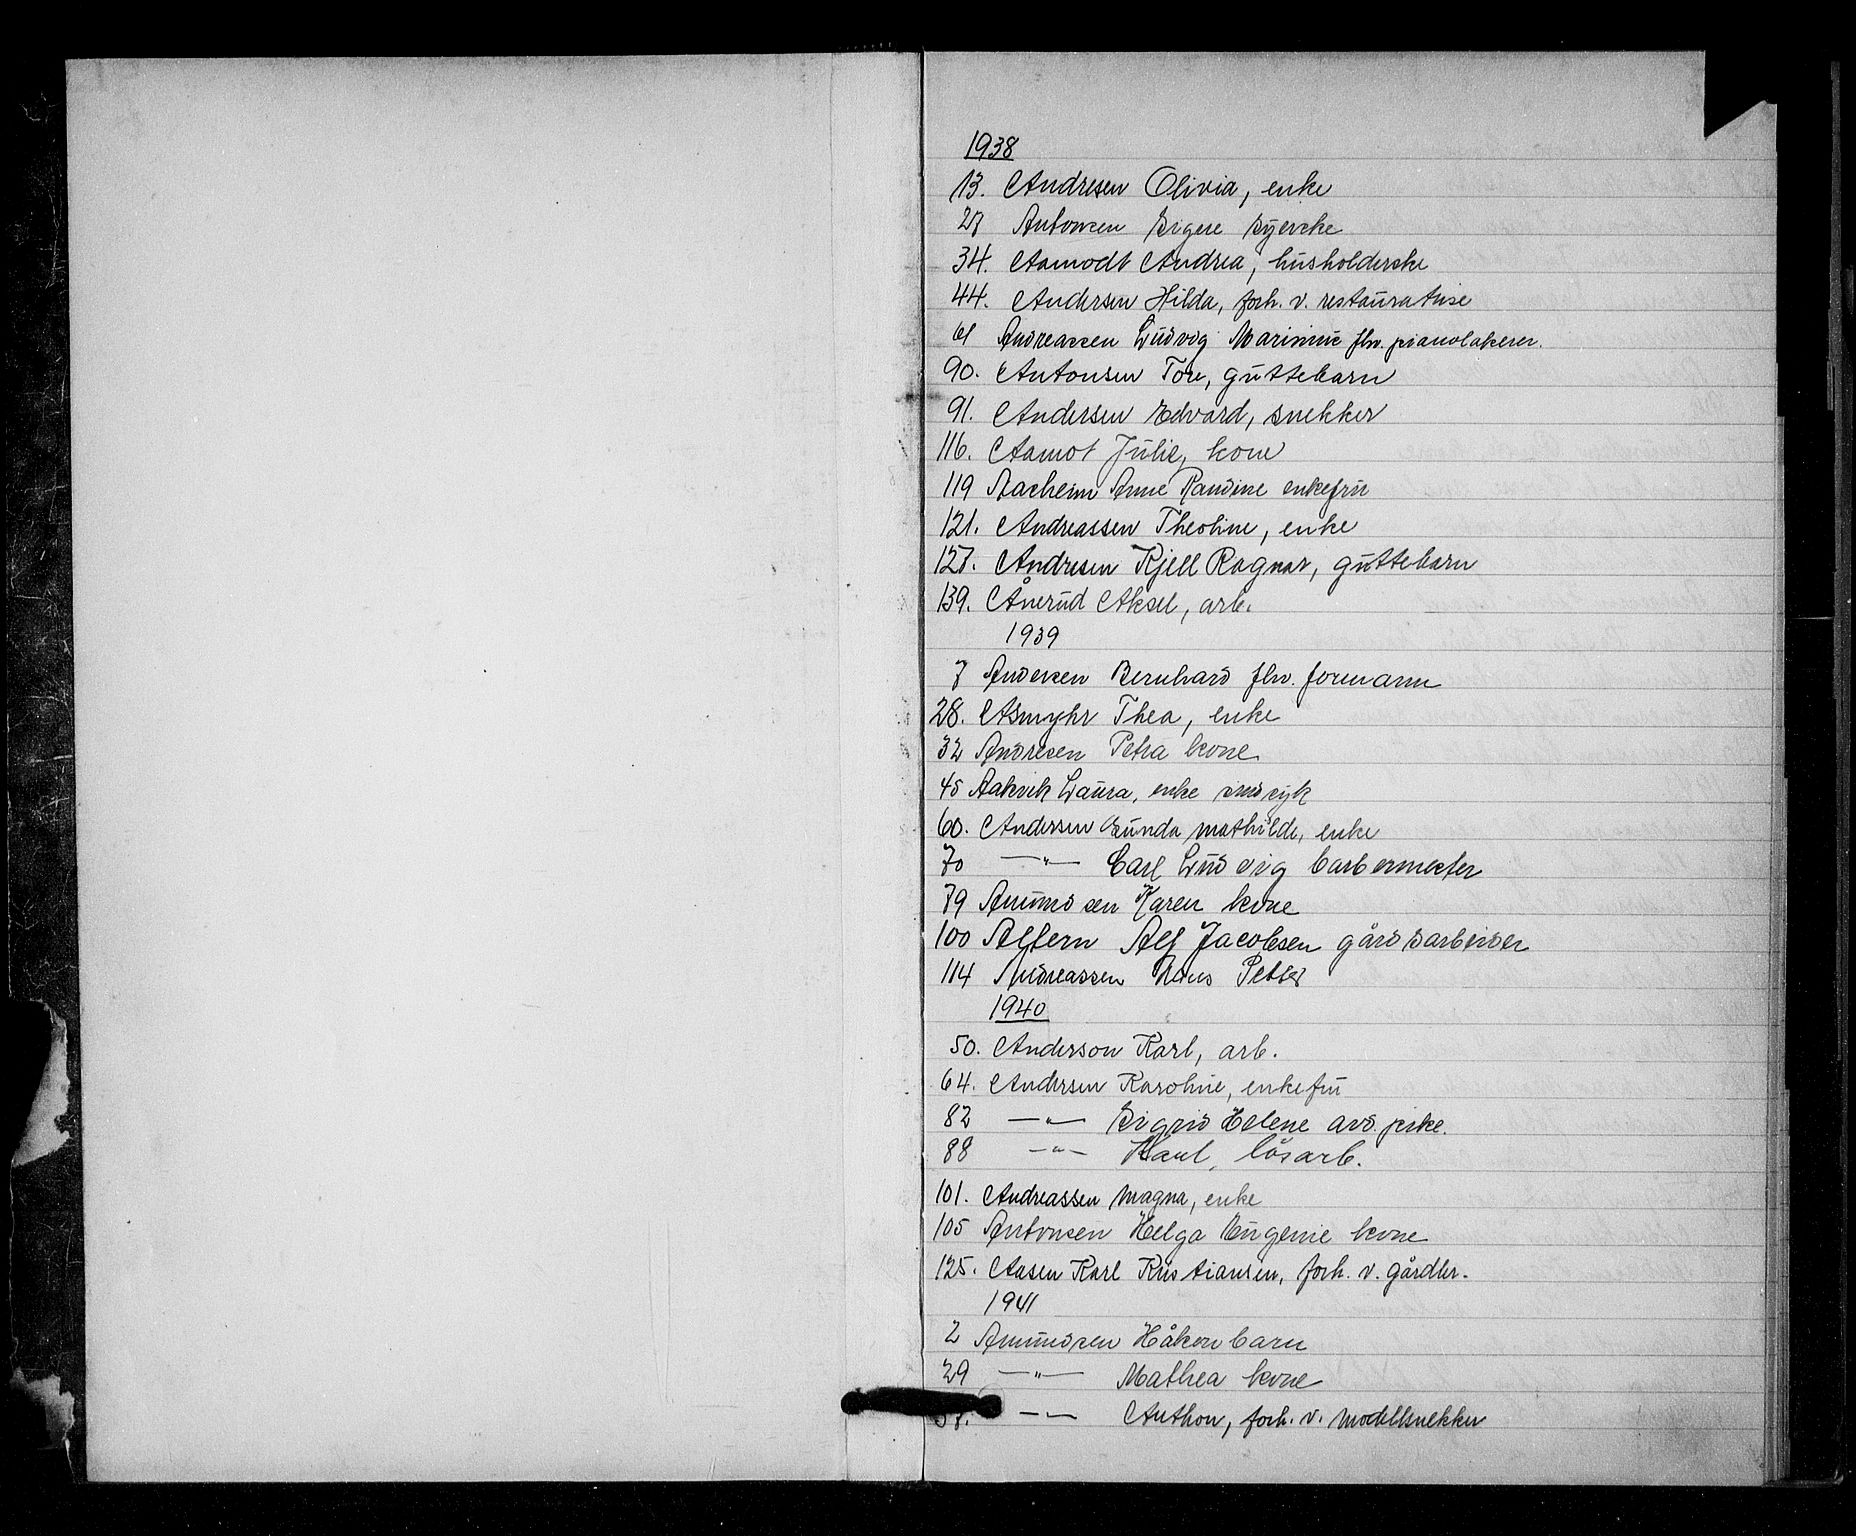 1938
13. Andresen Olivia, enke
27 Antonsen Signe syerske
34. Aamodt Andrea, husholderske
44. Andersen Hilda, forh. v. restauratrise
61 Andreassen Ludvig Marinius fhv. pianolakerer.
90. Antonsen Tore, guttebarn
91. Andersen Edvard, snekker
116. Aamot Julie, kone
119 Aasheim Anne Randine enkefru
121. Andreassen Theoline, enke
127. Andresen Kjell Ragnar, guttebarn
139. Ånerud Aksel, arb.
1939
7 Andersen Bernhard fhv. formann
28. Asmyhr Thea, enke
32 Andresen Petra kone
45 Aakvik Laura, enke sinds syk
60. Andersen Gunda Mathilde, enke
70 —"— Carl Ludvig barbermester
79 Amundsen Karen kone
100 Alfern Alf Jacobsen gårdsarbeider
114 Andreassen Hans Petter
1940
50. Anderson Karl, arb.
64. Andersen Karoline, enkefru
82 —"— Sigrid Helene arb. pike.
88 —"— Karl, løsarb.
101. Andreassen Magna, enke
105 Antonsen Helga Eugenie kone
125. Aasen Karl Kristiansen, forh. v. gårdbr.
1941
2 Amundsen Håkon barn
29 —"— Mathea kone
—"— Anthon, forh. v. modellsnekker